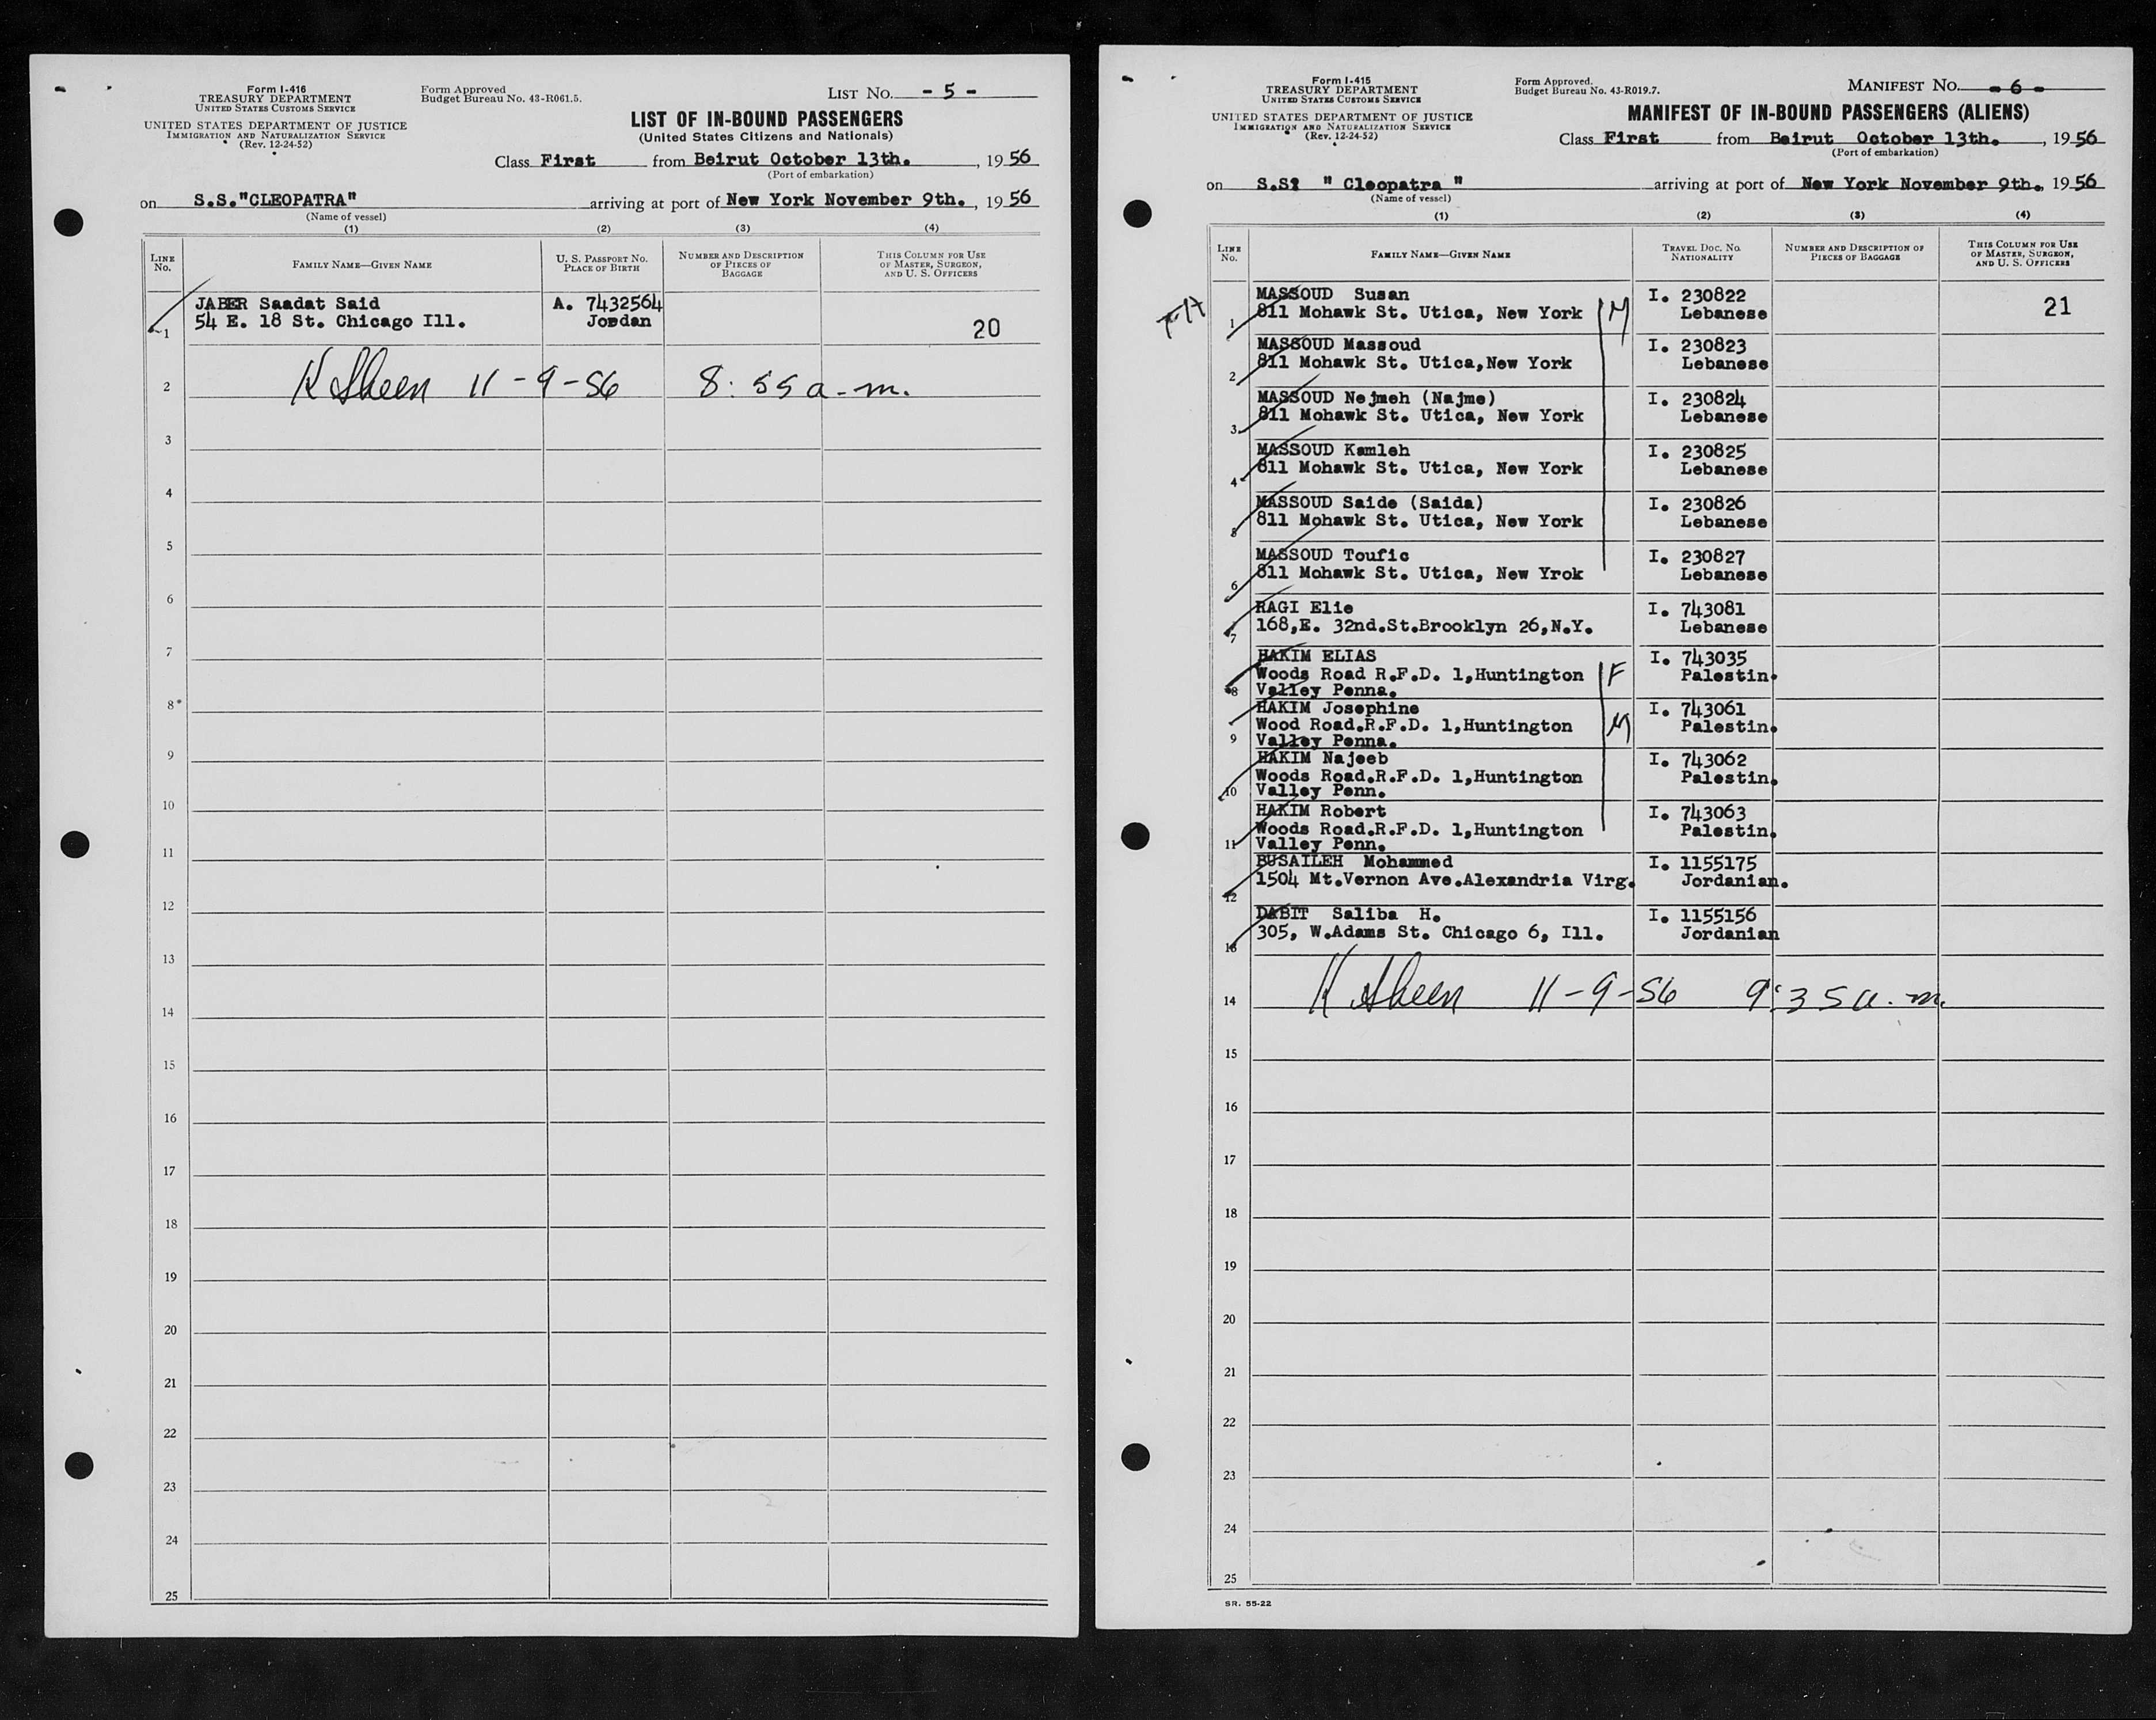 Form I-416
TREASURY DEPARTMENT
UNITED STATES CUSTOMS SERVICE
UNITED STATES DEPARTMENT OF JUSTICE
IMMIGRATION AND NATURALIZATION SERVICE
(Rev. 12-24-52)
Form Approved
Budget Bureau No. 43-R061.5.
LIST NO. - 5 -
LIST OF IN-BOUND PASSENGERS
(United States Citizens and Nationals)
Class First from Beirut October 13th. , 1956
(Port of embarkation)
on S.S."CLEOPATRA" arriving at port of New York November 9th. , 1956
(Name of vessel)
(1) (2) (3) (4)
LINE No. FAMILY NAME—GIVEN NAME U. S. PASSPORT NO. PLACE OF BIRTH NUMBER AND DESCRIPTION OF PIECES OF BAGGAGE THIS COLUMN FOR USE OF MASTER, SURGEON, AND U. S. OFFICERS
JABER Saadat Said A. 7432564
1 54 E. 18 St. Chicago Ill. Jordan 20
2 K Sheen 11-9-56 8:55 a.m.
3
4
5
6
7
8
9
10
11
12
13
14
15
16
17
18
19
20
21
22
23
24
25
Form I-415
TREASURY DEPARTMENT
UNITED STATES CUSTOMS SERVICE
UNITED STATES DEPARTMENT OF JUSTICE
IMMIGRATION AND NATURALIZATION SERVICE
(Rev. 12-24-52)
Form Approved.
Budget Bureau No. 43-R019.7.
MANIFEST NO. - 6 -
MANIFEST OF IN-BOUND PASSENGERS (ALIENS)
Class First from Beirut October 13th. , 1956
(Port of embarkation)
on S.S? " Cleopatra " arriving at port of New York November 9th., 1956
(Name of vessel)
(1) (2) (3) (4)
LINE No. FAMILY NAME—GIVEN NAME TRAVEL DOC. NO. NATIONALITY NUMBER AND DESCRIPTION OF PIECES OF BAGGAGE THIS COLUMN FOR USE OF MASTER, SURGEON, AND U. S. OFFICERS
MASSOUD Susan I. 230822 21
1 811 Mohawk St. Utica, New York M Lebanese
MASSOUD Massoud I. 230823
2 811 Mohawk St. Utica,New York Lebanese
MASSOUD Nejmeh (Najme) I. 230824
3 811 Mohawk St. Utica, New York Lebanese
MASSOUD Kamleh I. 230825
4 811 Mohawk St. Utica, New York Lebanese
MASSOUD Saide (Saida) I. 230826
5 811 Mohawk St. Utica, New York Lebanese
MASSOUD Toufic I. 230827
6 811 Mohawk St. Utica, New Yrok Lebanese
RAGI Elie I. 743081
7 168,E. 32nd.St.Brooklyn 26,N.Y. Lebanese
HAKIM ELIAS I. 743035
Woods Road R.F.D. 1,Huntington F Palestin.
8 Valley Penna.
HAKIM Josephine I. 743061
Wood Road.R.F.D. 1,Huntington M Palestin.
9 Valley Penna.
HAKIM Najeeb I. 743062
Woods Road.R.F.D. 1,Huntington Palestin.
10 Valley Penn.
HAKIM Robert I. 743063
Woods Road.R.F.D. 1,Huntington Palestin.
11 Valley Penn.
BUSAILEH Mohammed I. 1155175
12 1504 Mt.Vernon Ave.Alexandria Virg. Jordanian.
DABIT Saliba H. I. 1155156
13 305, W.Adams St. Chicago 6, Ill. Jordanian
14 K Sheen 11-9-56 9:35 a.m.
15
16
17
18
19
20
21
22
23
24
25
SR. 55-22